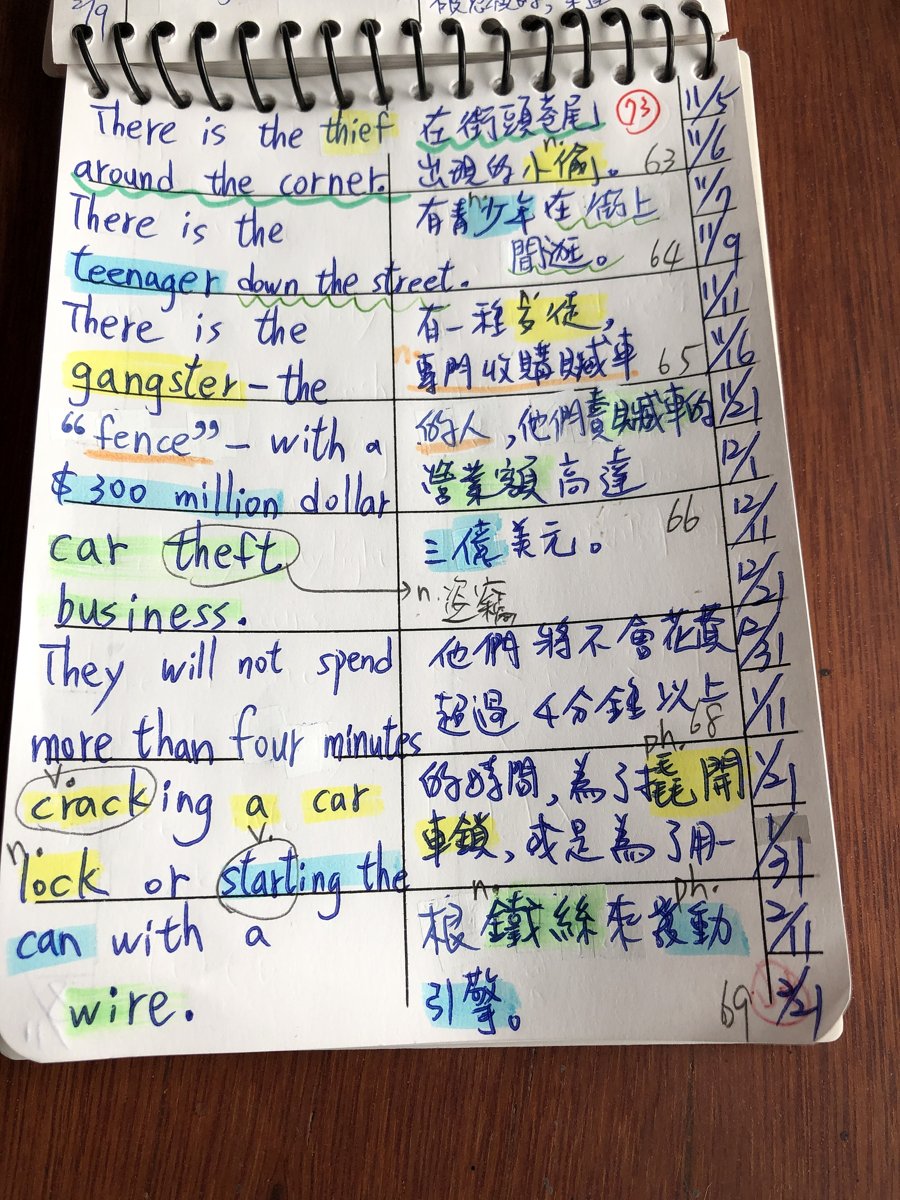 2/9
There is the thief
around the corner.
There is the
teenager down the street.
There is the
gangster – the
“fence” – with a
$ 300 million dollar
car theft
business.
They will not spend
more than four minutes
v.
cracking a car
n. v.
lock or starting the
can with a
wire.
在街頭巷尾 73
n.
出現的小偷。 63
n.
有青少年在街上
閒逛。 64
n.
有一種歹徒,
n.
專門收購贓車 65
的人,他們賣贓車的
營業額高達
66
三億美元。
n. 盜竊
他們將不會花費
超過4分鐘以上
68
ph.
的時間,為了撬開
車鎖,或是為了用一
n. ph.
根鐵絲來發動
引擎。 69
11/5
11/6
11/7
11/9
11/11
11/16
11/21
12/1
12/11
12/21
12/31
1/11
1/21
1/31
2/11
2/21